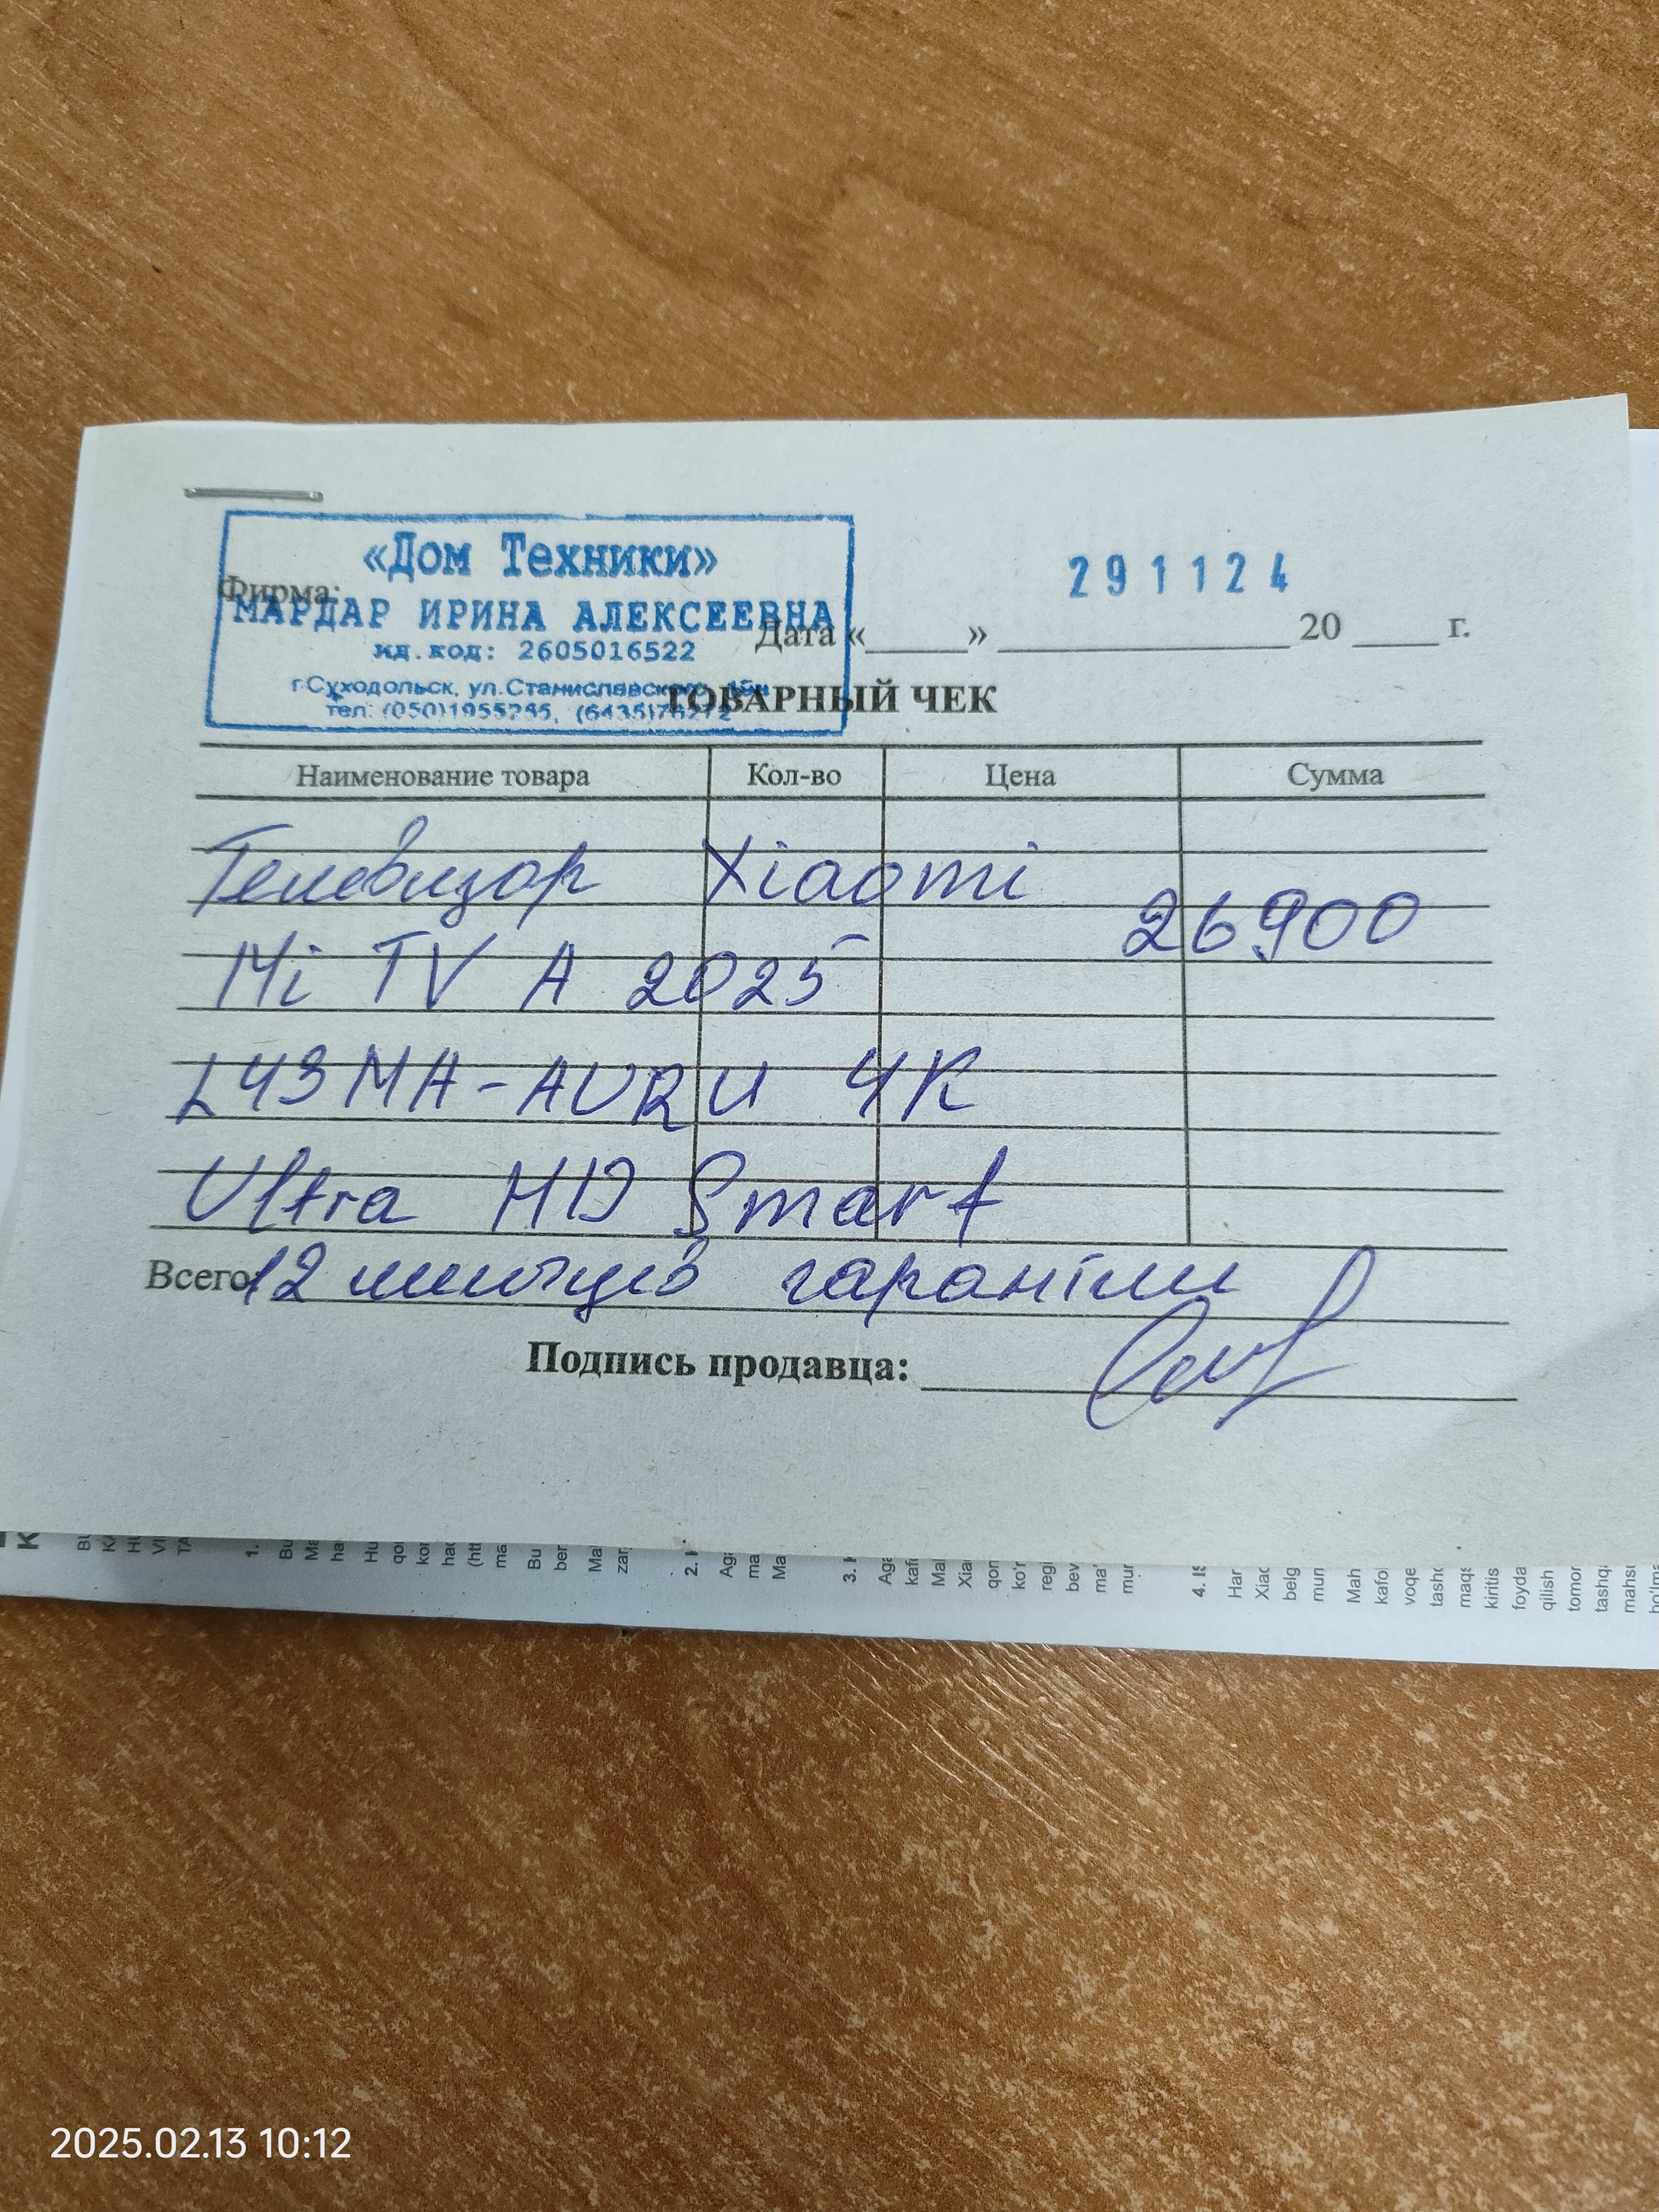 «Дом Техники»
Фирма:
МАРДАР ИРИНА АЛЕКСЕЕВНА
ид.код: 2605016522
г.Суходольск, ул.Станиславского,
тел: (050)1955785,
291124
Дата «_____» _______________ 20 ____ г.
ТОВАРНЫЙ ЧЕК
Наименование товара Кол-во Цена Сумма
Телевизор Xiaomi
26900
Mi TV A 2025
L43MA-AURU 4K
Ultra HD Smart
Всего 12 гарантии
Подпись продавца:
1.
2.
3.
4.
2025.02.13 10:12